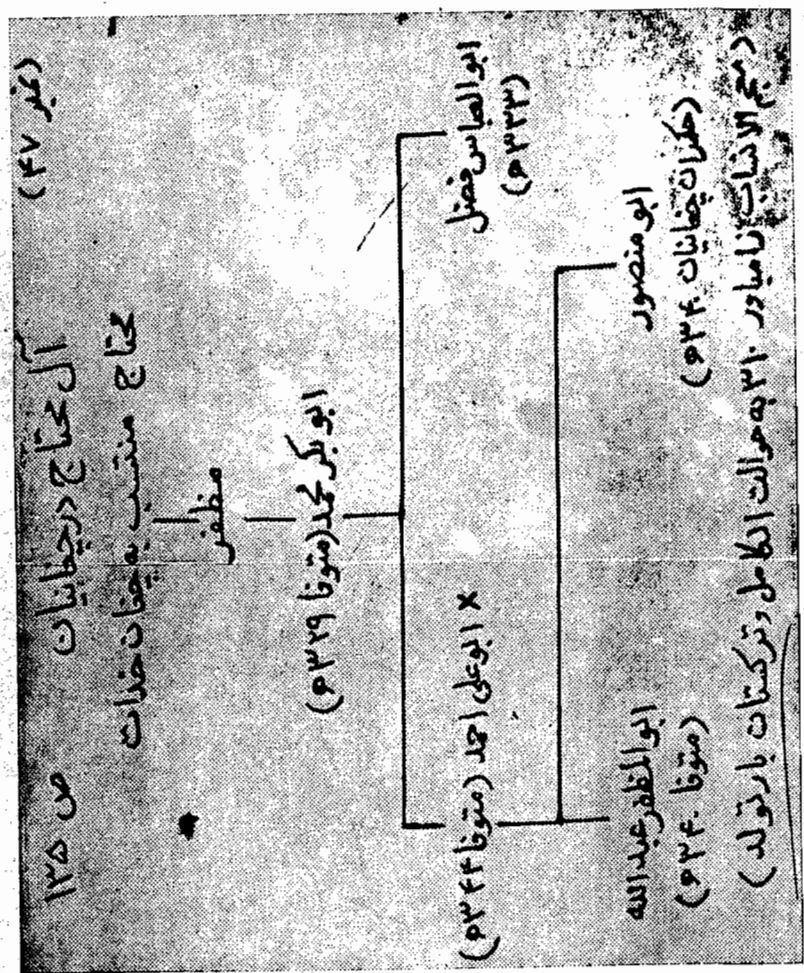 (نمبر ۴۷)
ص ۱۳۵
آل محتاج در چغانیان
محتاج منتسب به چغان خذات
مظفر
ابوبکر محمد (متوفا ۳۲۹ ه)
ابوالعباس فضل
(۳۳۳ ه)
× ابوعلی احمد (متوفا ۳۴۴ ه)
ابو منصور
(حکمران چغانیان ۳۴۰ ه)
ابوالمظفر عبدالله
(متوفا ۳۴۰ ه)
(معجم الانساب زامباور ۳۱۰ به حوالت الکامل و ترکستان بارتولد)